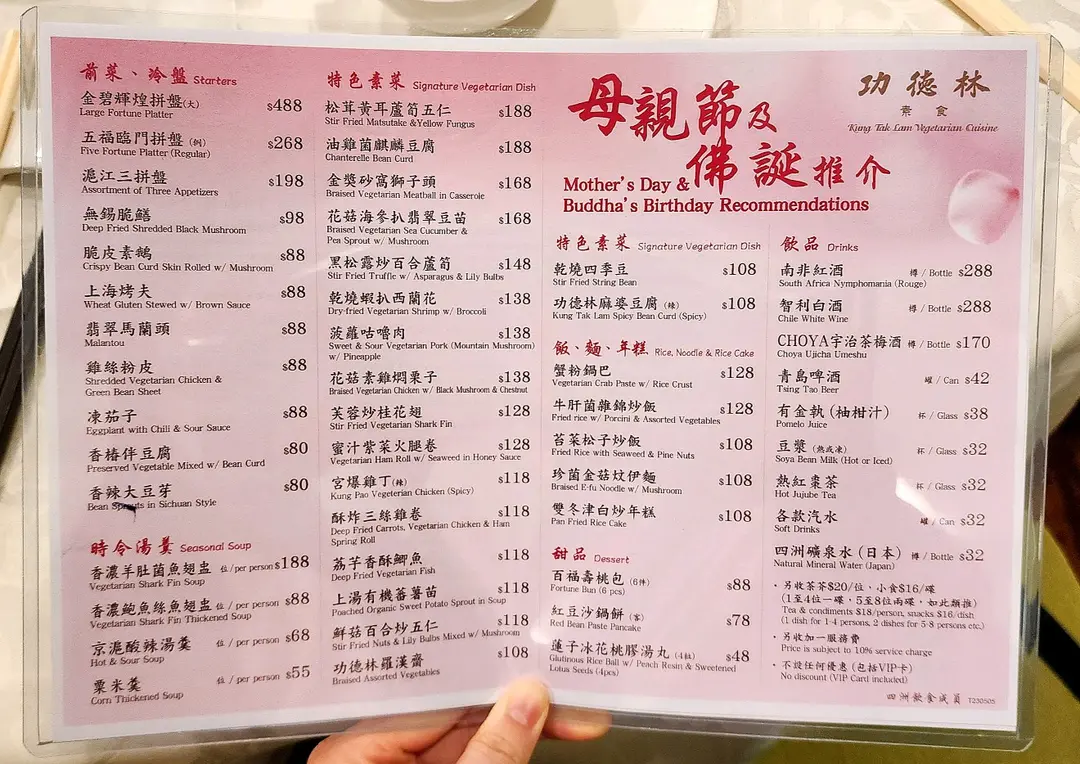 前菜、冷盤 Starters
金碧輝煌拼盤(大) $488
Large Fortune Platter
五福臨門拼盤 (例) $268
Five Fortune Platter (Regular)
滬江三拼盤 $198
Assortment of Three Appetizers
無錫脆鱔 $98
Deep Fried Shredded Black Mushroom
脆皮素鵝 $88
Crispy Bean Curd Skin Rolled w/ Mushroom
上海烤夫 $88
Wheat Gluten Stewed w/ Brown Sauce
翡翠馬蘭頭 $88
Malantou
雞絲粉皮 $88
Shredded Vegetarian Chicken &
Green Bean Sheet
凍茄子 $88
Eggplant with Chili & Sour Sauce
香椿伴豆腐 $80
Preserved Vegetable Mixed w/ Bean Curd
香辣大豆芽 $80
Bean Sprouts in Sichuan Style
時令湯羹 Seasonal Soup
香濃羊肚菌魚翅盅 位 / per person $188
Vegetarian Shark Fin Soup
香濃鮑魚絲魚翅盅 位 / per person $88
Vegetarian Shark Fin Thickened Soup
京滬酸辣湯羹 位 / per person $68
Hot & Sour Soup
粟米羹 位 / per person $55
Corn Thickened Soup
特色素菜 Signature Vegetarian Dish
松茸黃耳蘆筍五仁 $188
Stir Fried Matsutake &Yellow Fungus
油雞菌麒麟豆腐 $188
Chanterelle Bean Curd
金獎砂窩獅子頭 $168
Braised Vegetarian Meatball in Casserole
花菇海參扒翡翠豆苗 $168
Braised Vegetarian Sea Cucumber &
Pea Sprout w/ Mushroom
黑松露炒百合蘆筍 $148
Stir Fried Truffle w/ Asparagus & Lily Bulbs
乾燒蝦扒西蘭花 $138
Dry-fried Vegetarian Shrimp w/ Broccoli
菠蘿咕嚕肉 $138
Sweet & Sour Vegetarian Pork (Mountain Mushroom)
w/ Pineapple
花菇素雞燜栗子 $138
Braised Vegetarian Chicken w/ Black Mushroom & Chestnut
芙蓉炒桂花翅 $128
Stir Fried Vegetarian Shark Fin
蜜汁紫菜火腿卷 $128
Vegetarian Ham Roll w/ Seaweed in Honey Sauce
宮爆雞丁(辣) $118
Kung Pao Vegetarian Chicken (Spicy)
酥炸三絲雞卷 $118
Deep Fried Carrots, Vegetarian Chicken & Ham
Spring Roll
荔子香酥鯽魚 $118
Deep Fried Vegetarian Fish
上湯有機蕃薯苗 $118
Poached Organic Sweet Potato Sprout in Soup
鮮菇百合炒五仁 $118
Stir Fried Nuts & Lily Bulbs Mixed w/ Mushroom
功德林羅漢齋 $108
Braised Assorted Vegetables
母親節及
佛誕推介
Mother's Day &
Buddha's Birthday Recommendations
功德林
素食
Kung Tak Lam Vegetarian Cuisine
特色素菜 Signature Vegetarian Dish
乾燒四季豆 $108
Stir Fried String Bean
功德林麻婆豆腐 (辣) $108
Kung Tak Lam Spicy Bean Curd (Spicy)
飯、麵、年糕 Rice, Noodle & Rice Cake
蟹粉鍋巴 $128
Vegetarian Crab Paste w/ Rice Crust
牛肝菌雜錦炒飯 $128
Fried rice w/ Porcini & Assorted Vegetables
苔菜松子炒飯 $108
Fried Rice with Seaweed & Pine Nuts
珍菌金菇炆伊麵 $108
Braised E-fu Noodle w/ Mushroom
雙冬津白炒年糕 $108
Pan Fried Rice Cake
甜品 Dessert
百福壽桃包 (6件) $88
Fortune Bun (6 pcs)
紅豆沙鍋餅 (客) $78
Red Bean Paste Pancake
蓮子冰花桃膠湯丸 (4粒) $48
Glutinous Rice Ball w/ Peach Resin & Sweetened
Lotus Seeds (4pcs)
飲品 Drinks
南非紅酒 樽 / Bottle $288
South Africa Nymphomania (Rouge)
智利白酒 樽 / Bottle $288
Chile White Wine
CHOYA宇治茶梅酒 樽 / Bottle $170
Choya Ujicha Umeshu
青島啤酒 罐 / Can $42
Tsing Tao Beer
有金執 (柚柑汁) 杯 / Glass $38
Pomelo Juice
豆漿 (熱或凍) 杯 / Glass $32
Soya Bean Milk (Hot or Iced)
熱紅棗茶 杯 / Glass $32
Hot Jujube Tea
各款汽水 罐 / Can $32
Soft Drinks
四洲礦泉水 (日本) 樽 / Bottle $32
Natural Mineral Water (Japan)
· 另收茶芥$20/位、小食$16/碟
(1至4位一碟，5至8位兩碟，如此類推)
Tea & condiments $18/person, snacks $16/dish
(1 dish for 1-4 persons, 2 dishes for 5-8 persons etc.)
· 另收加一服務費
Price is subject to 10% service charge
· 不設任何優惠 (包括VIP卡)
No discount (VIP Card included)
四洲飲食成員 T230505